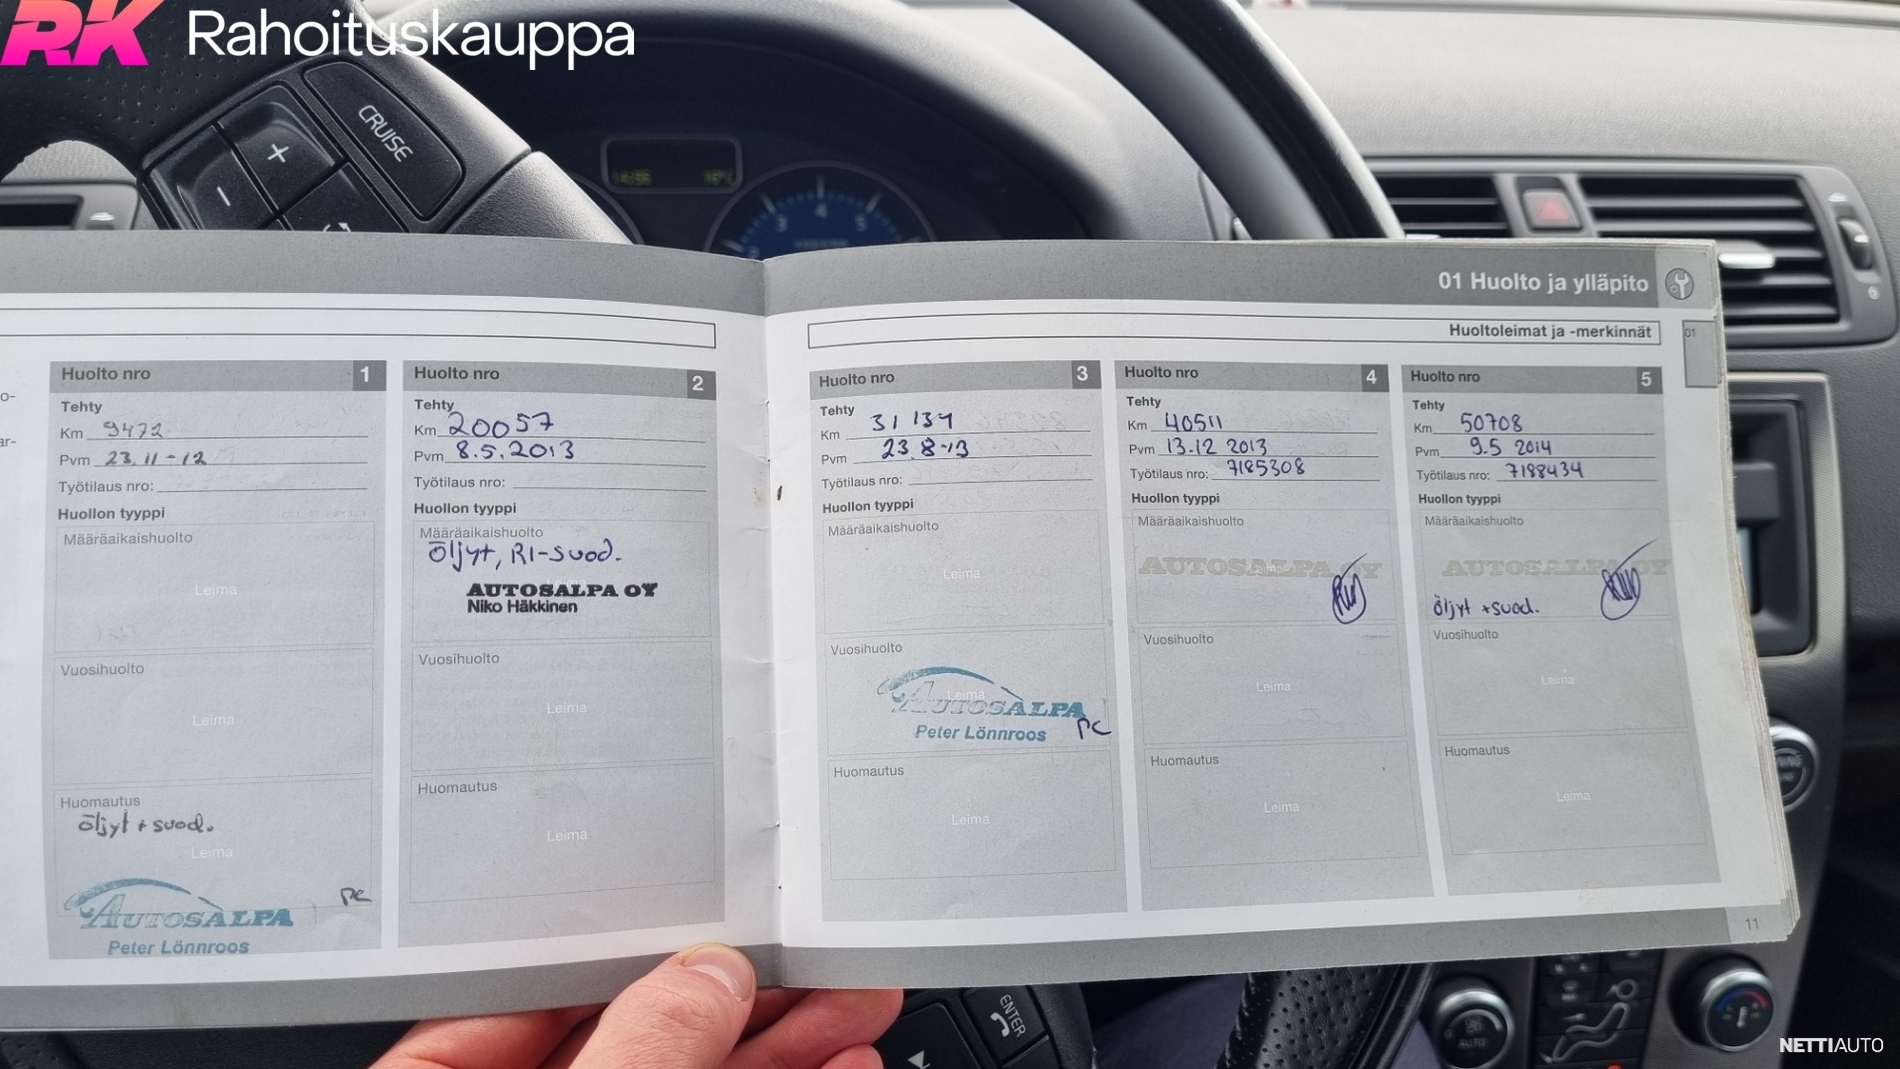 RK Rahoituskauppa
CRUISE
+
-
3 4 5
01 Huolto ja ylläpito
Huoltoleimat ja -merkinnät
01
Huolto nro 1
Tehty
Km 9472
Pvm 23.11-12
Työtilaus nro:
Huollon tyyppi
Määräaikaishuolto
Leima
Vuosihuolto
Leima
Huomautus
öljyt + suod.
Leima
AUTOSALPA
Peter Lönnroos
Huolto nro 2
Tehty
Km 20057
Pvm 8.5.2013
Työtilaus nro:
Huollon tyyppi
Määräaikaishuolto
öljyt, RI-suod.
Leima
AUTOSALPA OY
Niko Häkkinen
Vuosihuolto
Leima
Huomautus
Leima
Huolto nro 3
Tehty
Km 31134
Pvm 23.8-13
Työtilaus nro:
Huollon tyyppi
Määräaikaishuolto
Leima
Vuosihuolto
Leima
AUTOSALPA
Peter Lönnroos
Huomautus
Leima
Huolto nro 4
Tehty
Km 40511
Pvm 13.12 2013
Työtilaus nro: 7185308
Huollon tyyppi
Määräaikaishuolto
Leima
AUTOSALPA OY
Vuosihuolto
Leima
Huomautus
Leima
Huolto nro 5
Tehty
Km 50708
Pvm 9.5 2014
Työtilaus nro: 7188434
Huollon tyyppi
Määräaikaishuolto
AUTOSALPA OY
öljyt +suod.
Vuosihuolto
Leima
Huomautus
Leima
11
ENTER
AUTO
NETTIAUTO